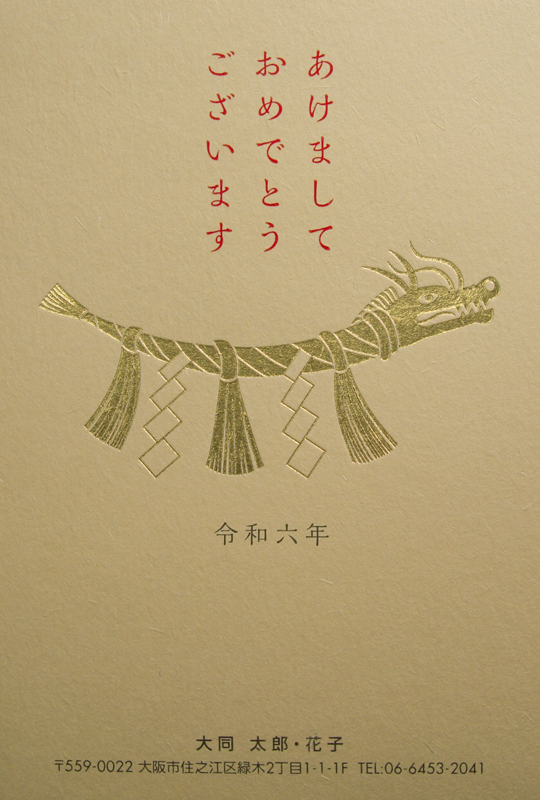 あけまして
おめでとう
ございます
令和六年
大同 太郎・花子
〒559-0022 大阪市住之江区緑木2丁目1-1-1F TEL:06-6453-2041